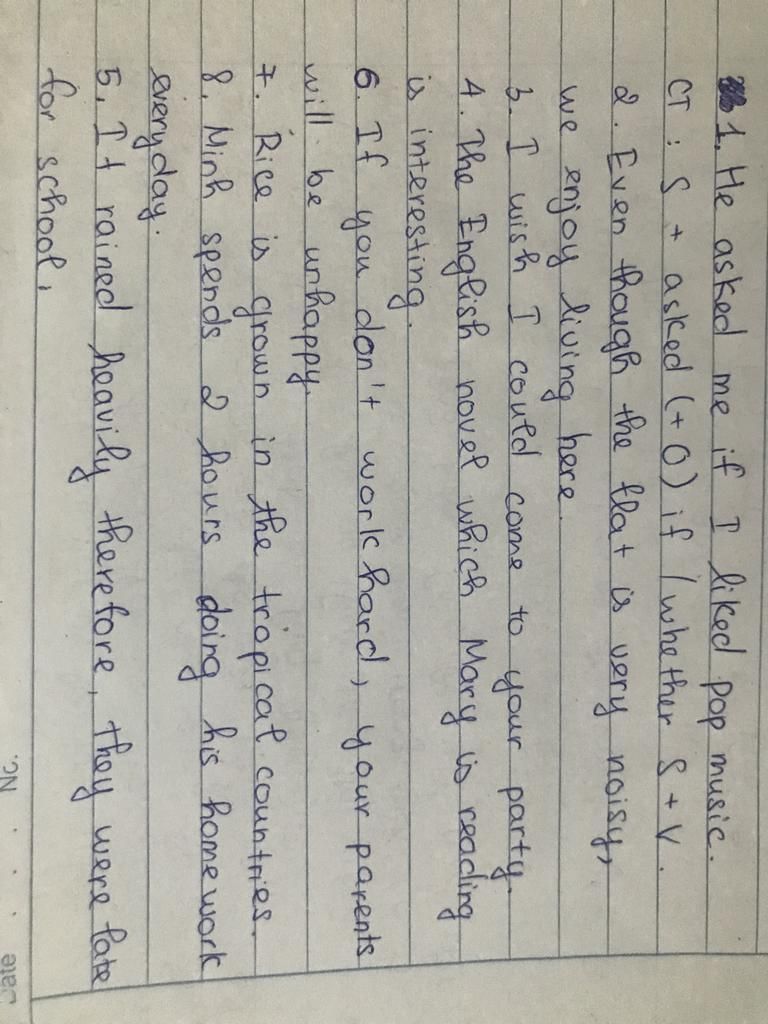 1. He asked me if I liked pop music.
CT : S + asked (+ O) if / whether S + V.
2. Even though the flat is very noisy,
we enjoy living here.
3. I wish I could come to your party.
4. The English novel which Mary is reading
is interesting.
6. If you don't work hard, your parents
will be unhappy.
7. Rice is grown in the tropical countries.
8. Minh spends 2 hours doing his homework
everyday.
5. It rained heavily therefore, they were late
for school.
No.
Date